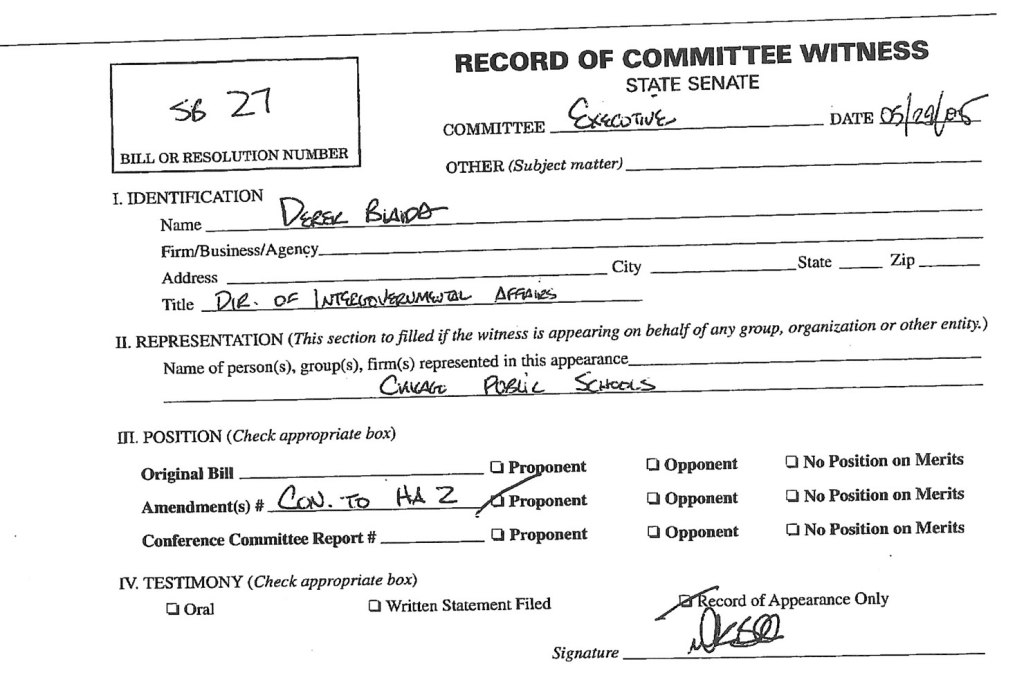 RECORD OF COMMITTEE WITNESS
STATE SENATE
SB 27
BILL OR RESOLUTION NUMBER
COMMITTEE EXECUTIVE DATE 05/29/05
OTHER (Subject matter)
I. IDENTIFICATION
Name DEREK
Firm/Business/Agency
Address City State Zip
Title DIR. OF INTERGOVERNMENTAL AFFAIRS
II. REPRESENTATION (This section to filled if the witness is appearing on behalf of any group, organization or other entity.)
Name of person(s), group(s), firm(s) represented in this appearance
CHICAGO PUBLIC SCHOOLS
III. POSITION (Check appropriate box)
Original Bill ❏ Proponent ❏ Opponent ❏ No Position on Merits
Amendment(s) # CON. TO HA 2 ❏ Proponent ❏ Opponent ❏ No Position on Merits
Conference Committee Report # ❏ Proponent ❏ Opponent ❏ No Position on Merits
IV. TESTIMONY (Check appropriate box)
❏ Oral ❏ Written Statement Filed ❏ Record of Appearance Only
Signature